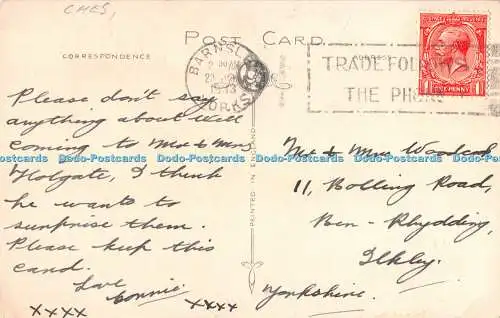 CHES,
POST CARD.
CORRESPONDENCE
BARNSLEY
1933
YORKS
TRADE FOLLOWS
THE PHONE
1 ONE PENNY 1
Please don't say
anything about Will
coming to Mr & Mrs
Holgate, I think
he wants to
surprise them.
Please keep this
card.
Love
Connie.
xxxx xxxx
PRINTED IN ENGLAND
Mr & Mrs Woodcock
11, Bolling Road,
Ben-Rhydding,
Ilkley.
Yorkshire.
Dodo-Postcards Dodo-Postcards Dodo-Postcards Dodo-Postcards Dodo-Postcards